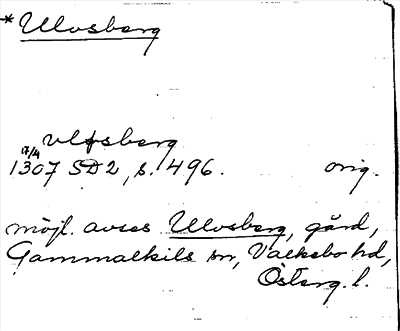 *Ulvsberg
vlfsberg
17/4
1307 SD2, s. 496. orig.
möjl. avses Ulvsberg, gård,
Gammalkils sn, Valkebo hd,
Österg. l.